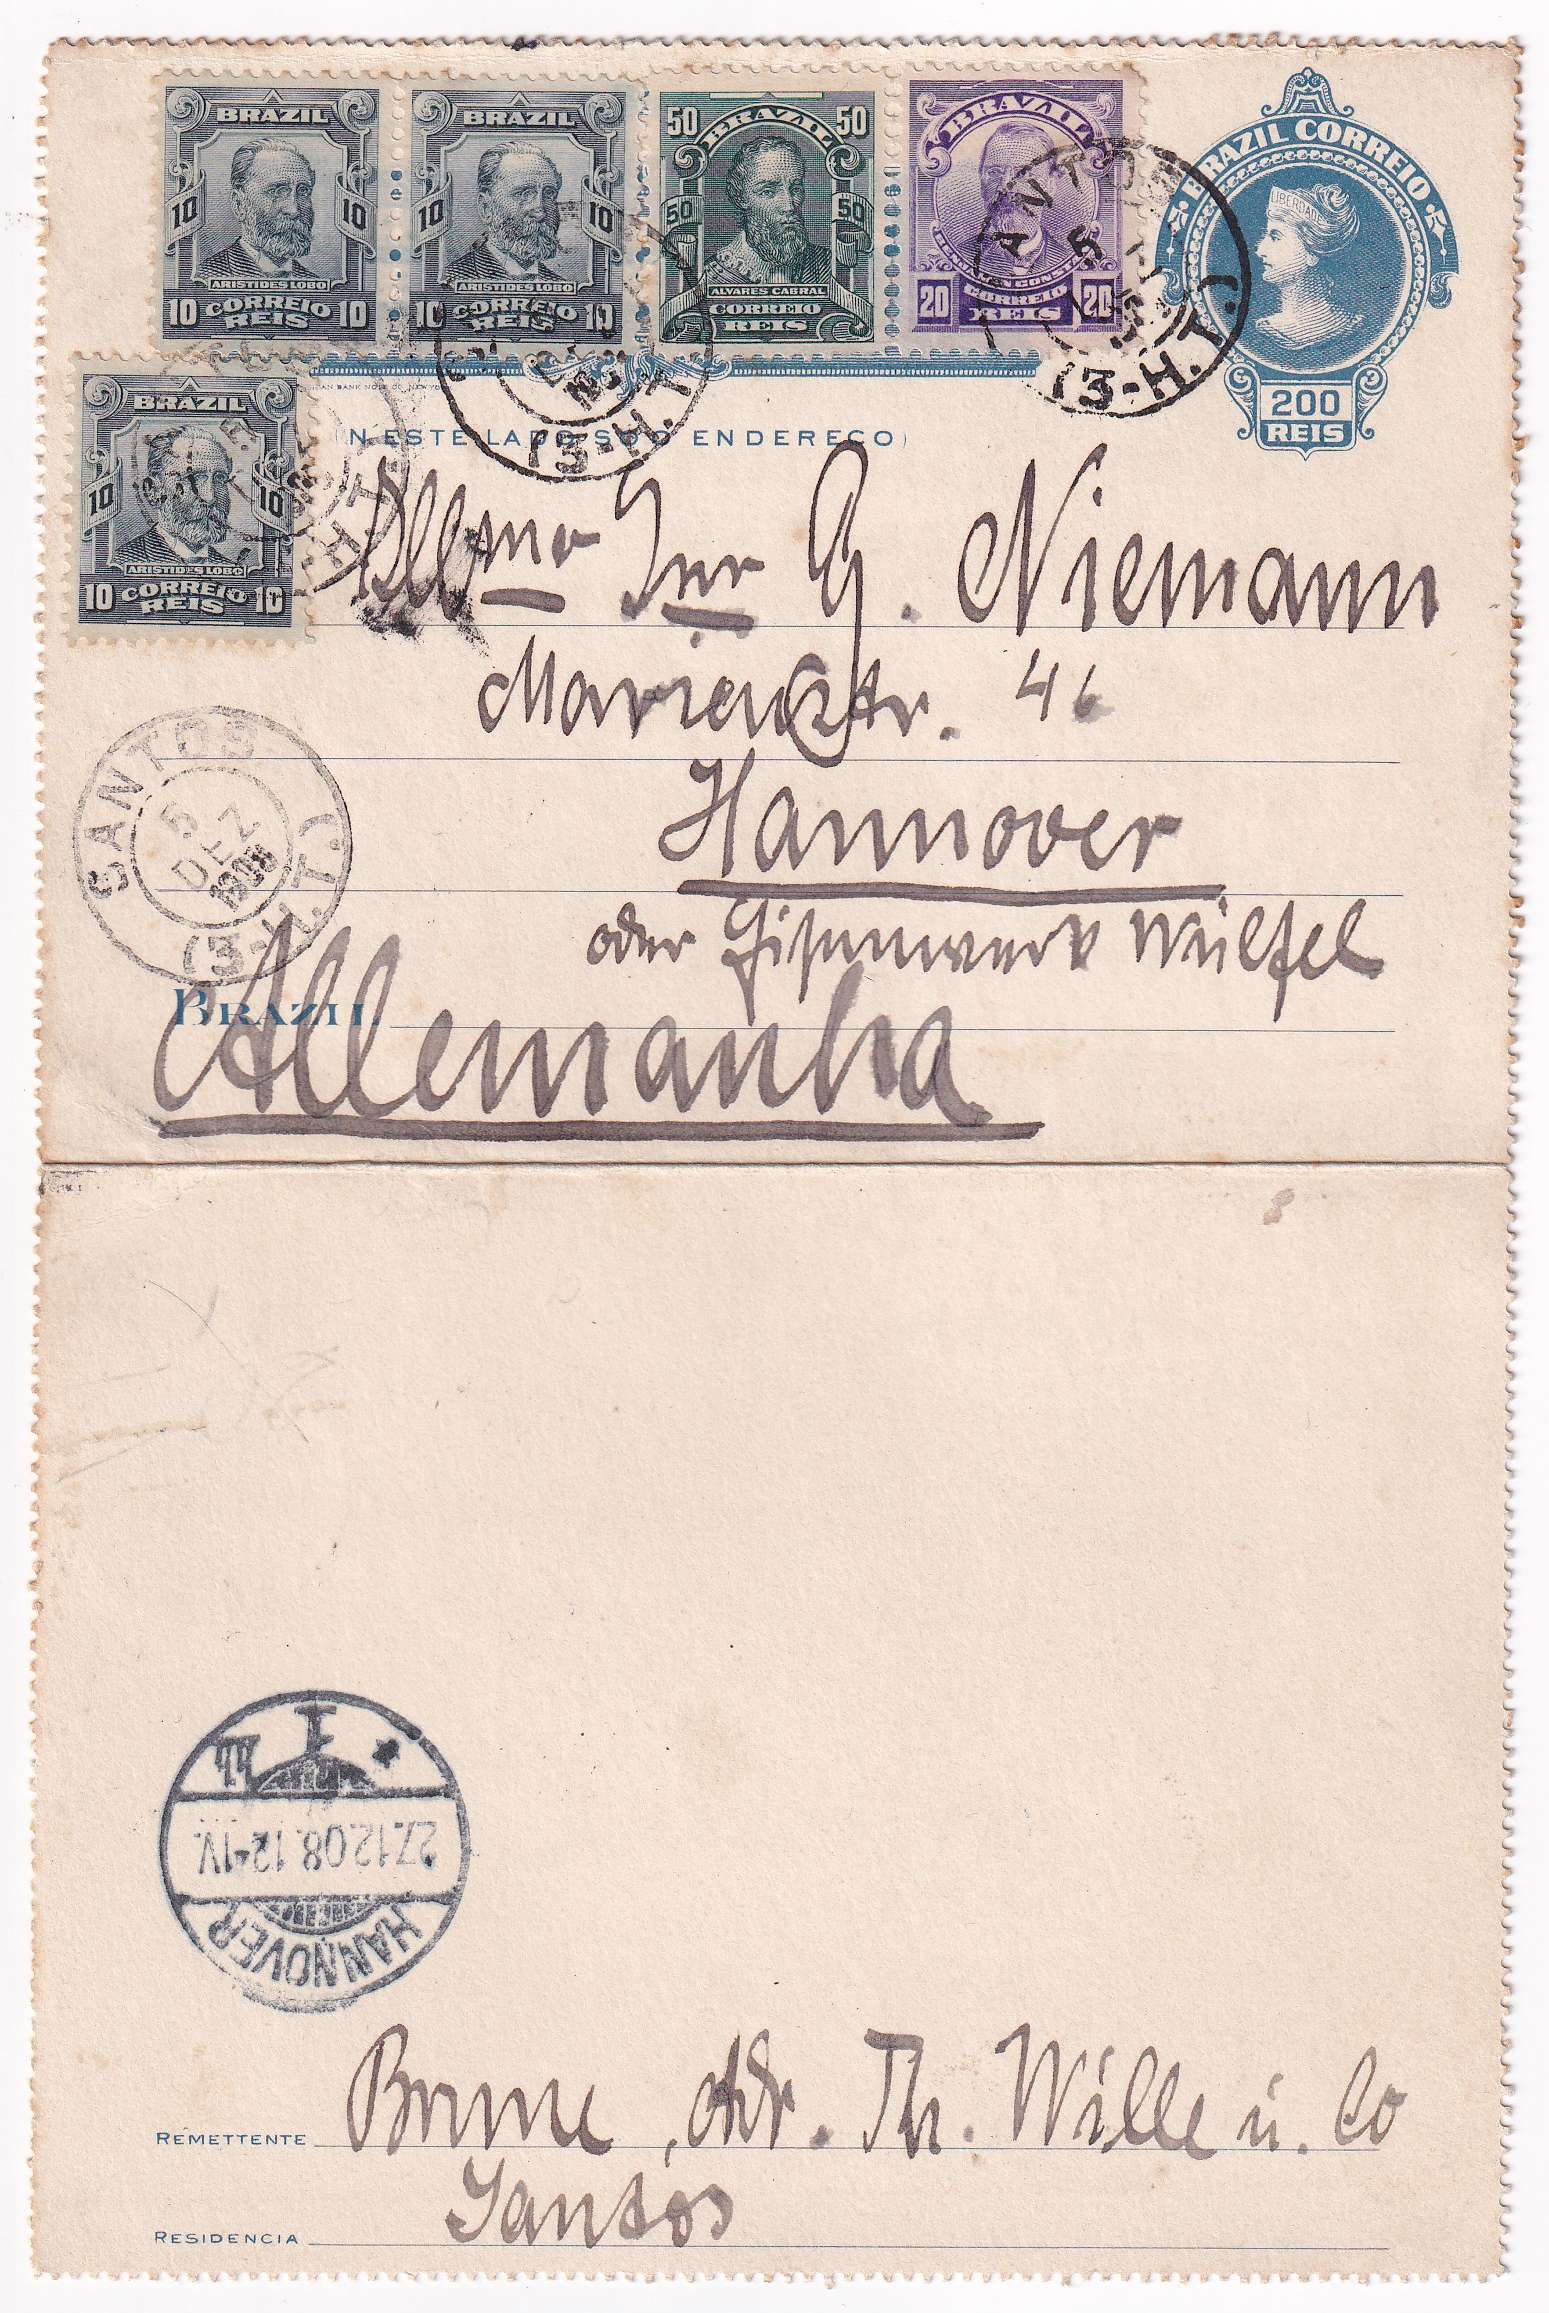 BRAZIL
10 10
ARISTIDES LOBO
10 CORREIO 10
REIS
BRAZIL
10 10
ARISTIDES LOBO
10 CORREIO 10
REIS
50 BRAZIL 50
50 50
ALVARES CABRAL
CORREIO
REIS
BRAZIL
CORREIO
20 REIS 20
BRAZIL CORREIO
LIBERDADE
200
REIS
BRAZIL
10 10
ARISTIDES LOBO
10 CORREIO 10
REIS
ANTOS
5
(3-H.T.)
(3-H.T.
(N'ESTE LADO SÓ O ENDEREÇO)
Illmo Snr G. Niemann
Marienstr. 46
Hannover
oder Eisenwerk Wülfel
SANTOS
5
DEZ
1908
(3-H.T.)
BRAZIL
Allemanha
HANNOVER
27.12.08.12-1V.
1
REMETTENTE Th. Wille u. Co
RESIDENCIA Santos